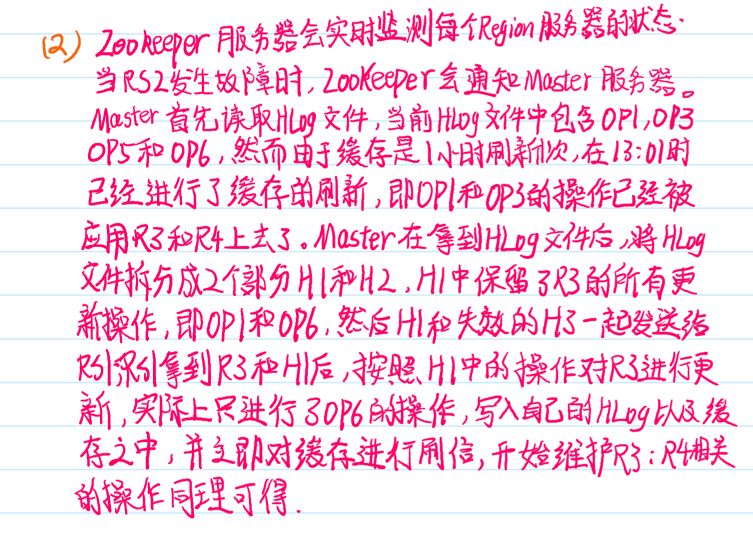 (2) Zookeeper 服务器会实时监测每个Region服务器的状态.
当RS2发生故障时, ZooKeeper会通知Master服务器。
Master首先读取HLog文件,当前HLog文件中包含OP1,OP3
OP5和OP6,然而由于缓存是1小时刷新1次,在13:01时
已经进行了缓存的刷新,即OP1和OP3的操作已经被
应用R3和R4上去了。Master在拿到HLog文件后,将HLog
文件拆分成2个部分H1和H2,H1中保留了R3的所有更
新操作,即OP1和OP6,然后H1和失效的H3一起发送给
RS1,RS1拿到R3和H1后,按照H1中的操作对R3进行更
新,实际上只进行了OP6的操作,写入自己的HLog以及缓
存之中,并立即对缓存进行刷信,开始维护R3;R4相关
的操作同理可得.